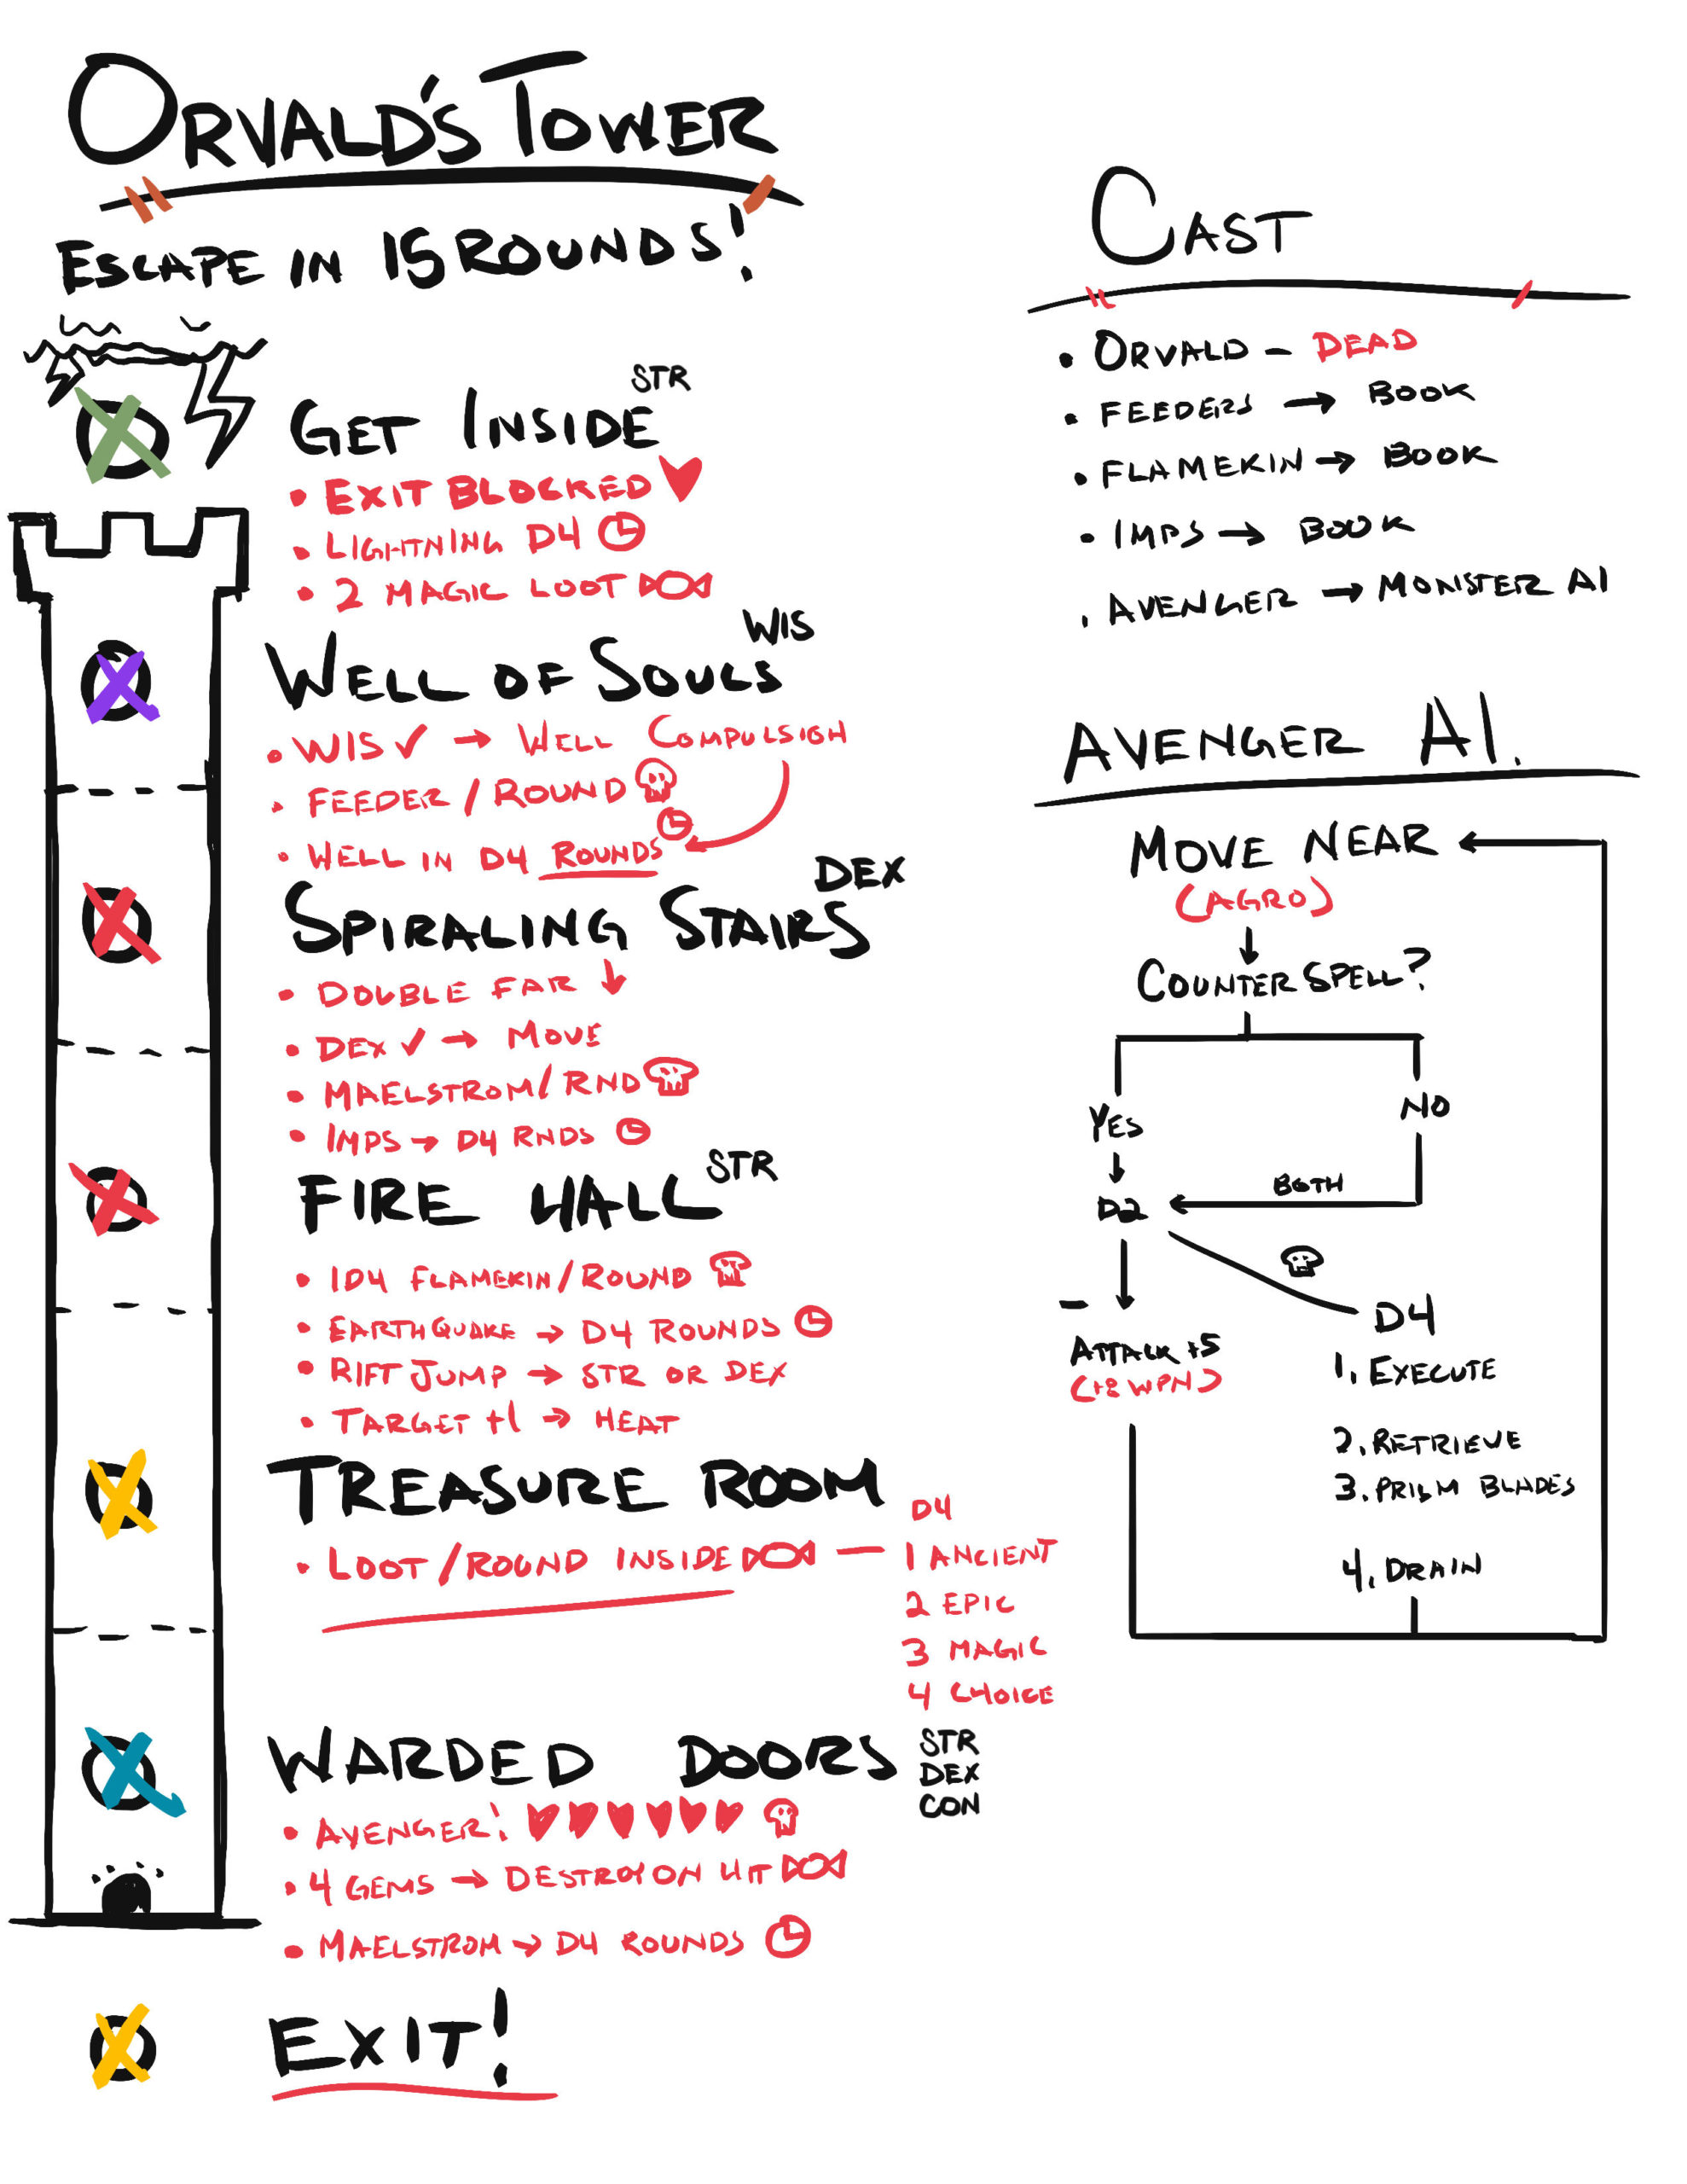 ORVALD'S TOWER
ESCAPE IN 15 ROUNDS!
GET INSIDE STR
• EXIT BLOCKED
• LIGHTNING D4
• 2 MAGIC LOOT
WELL OF SOULS WIS
• WIS ✓ → WELL COMPULSION
• FEEDER / ROUND
• WELL IN D4 ROUNDS
SPIRALING STAIRS DEX
• DOUBLE FAR ↓
• DEX ✓ → MOVE
• MAELSTROM / RND
• IMPS → D4 RNDS
FIRE HALL STR
• 1D4 FLAMEKIN / ROUND
• EARTHQUAKE → D4 ROUNDS
• RIFT JUMP → STR OR DEX
• TARGET +1 → HEAT
TREASURE ROOM
• LOOT / ROUND INSIDE —
D4
1 ANCIENT
2 EPIC
3 MAGIC
4 CHOICE
WARDED DOORS
STR
DEX
CON
• AVENGER:
• 4 GEMS → DESTROY ON HIT
• MAELSTROM → D4 ROUNDS
EXIT!
CAST
• ORVALD – DEAD
• FEEDERS → BOOK
• FLAMEKIN → BOOK
• IMPS → BOOK
• AVENGER → MONSTER AI
AVENGER AI.
MOVE NEAR
(AGRO)
COUNTER SPELL?
YES
NO
BOTH
D2
ATTACK +5
(+8 WPN)
D4
1. EXECUTE
2. RETRIEVE
3. PRISM BLADES
4. DRAIN